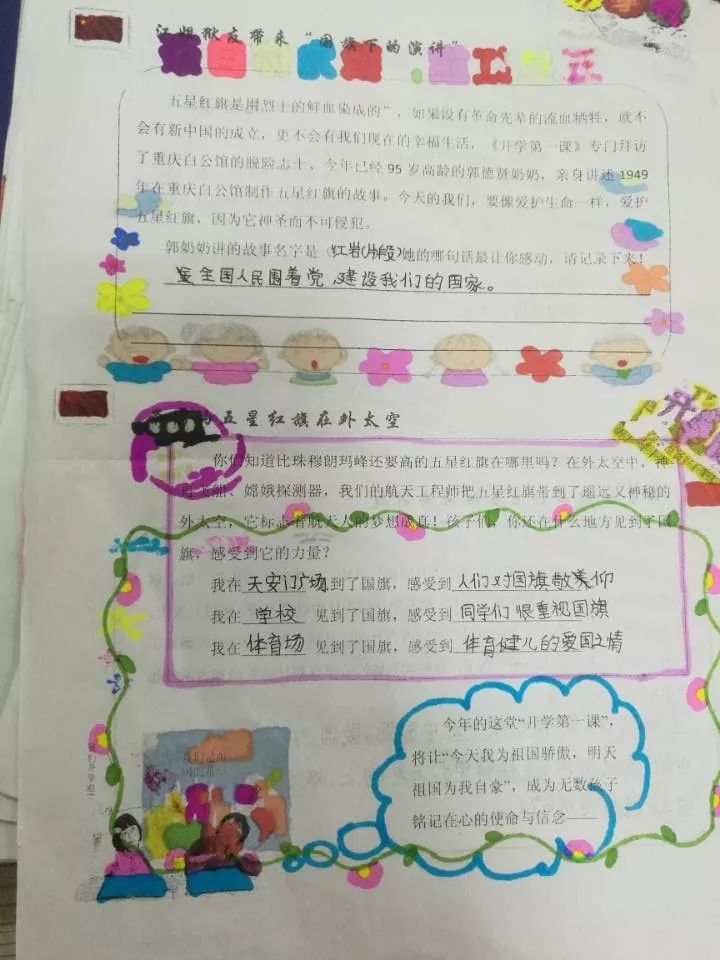 江姐狱友带来“国旗下的演讲”
五星红旗是用烈士的鲜血染成的”，如果没有革命先辈的流血牺牲，就不
会有新中国的成立，更不会有我们现在的幸福生活，《开学第一课》专门拜访
了重庆白公馆的脱险志士、今年已经 95 岁高龄的郭德贤奶奶，亲身讲述 1949
年在重庆白公馆制作五星红旗的故事。今天的我们，要像爱护生命一样，爱护
五星红旗，因为它神圣而不可侵犯。
郭奶奶讲的故事名字是（红岩(片段)）她的哪句话最让你感动，请记录下来！
全国人民围着党，建设我们的国家。
五星红旗在外太空
你们知道比珠穆朗玛峰还要高的五星红旗在哪里吗？在外太空中，神
飞船、嫦娥探测器，我们的航天工程师把五星红旗带到了遥远又神秘的
外太空，它标志着航天人的梦想成真！孩子们，你还在什么地方见到了国
旗，感受到它的力量？
我在 天安门广场 到了国旗，感受到 人们对国旗敬养仰
我在 学校 见到了国旗，感受到 同学们很重视国旗
我在 体育场 见到了国旗，感受到 体育健儿的爱国之情
今年的这堂“开学第一课”，
将让“今天我为祖国骄傲，明天
祖国为我自豪”，成为无数孩子
铭记在心的使命与信念——